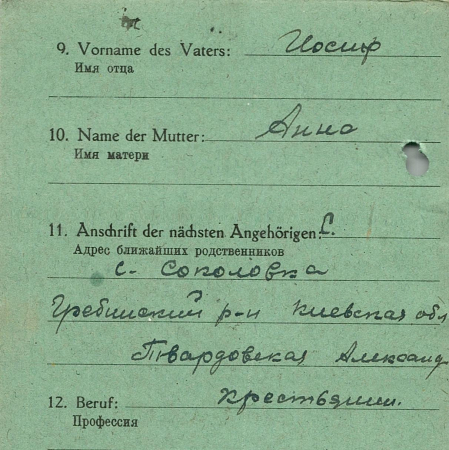 9. Vorname des Vaters: Иосиф
Имя отца
10. Name der Mutter: Анна
Имя матери
11. Anschrift der nächsten Angehörigen: С.
Адрес ближайших родственников
с. Соколовка
Гребінский р-н Киевская обл
Твардовская Александ
12. Beruf: Крестьянин.
Профессия